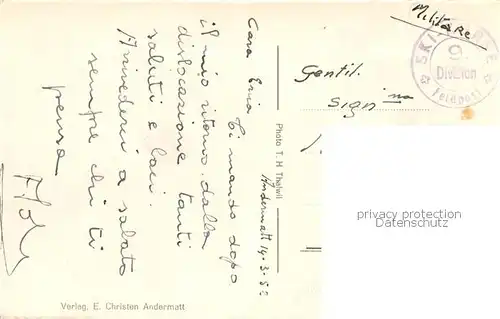 Militare
SKI
9.
Division
Feldpost
Gentil.
Sign na
Andermatt 14.3.52
Cara Erica
Ti mando dopo
il mio ritorno dalla
dislocazione tanti
saluti e baci.
Arrivederci a sabato
sempre chi ti
pensa
Photo T. H Thalwil
Verlag, E. Christen Andermatt
privacy protection
watermark